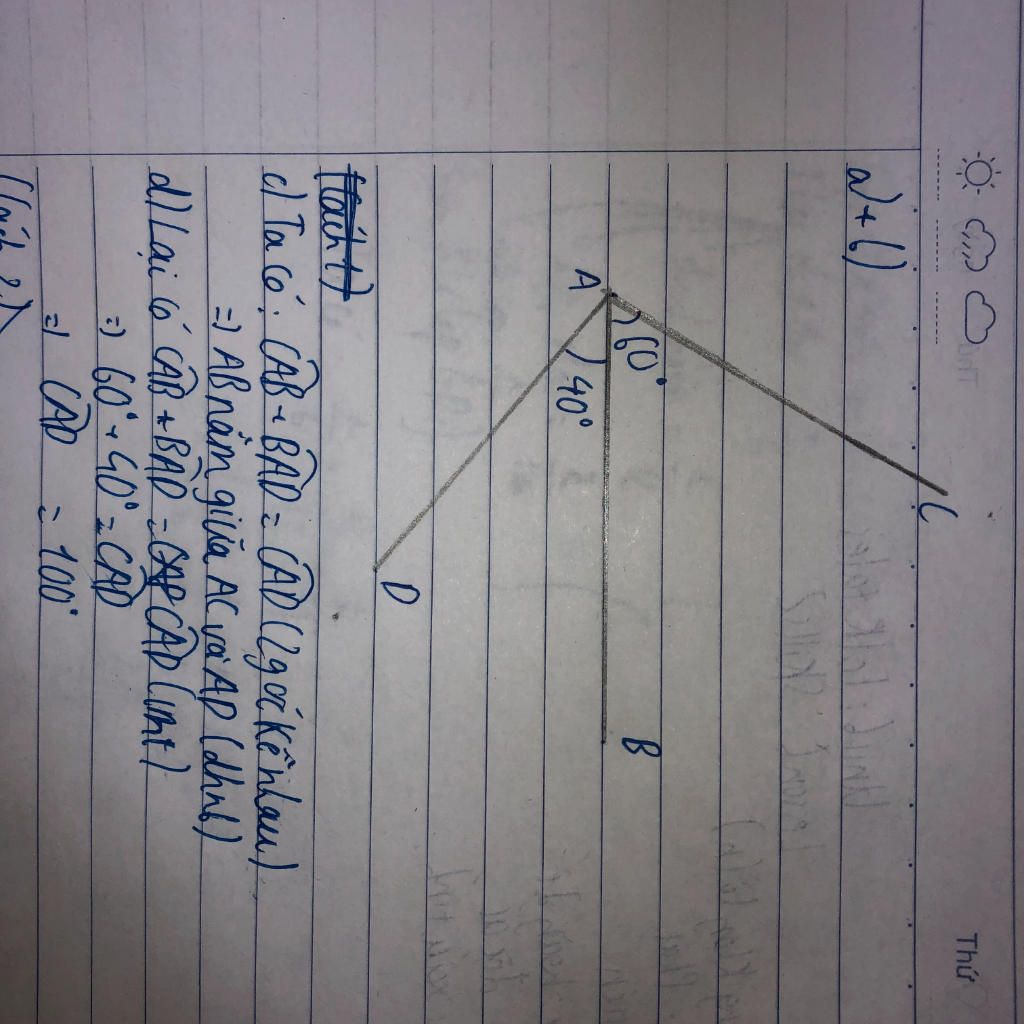 Thứ
a) + b)
C
60°
A
40°
B
D
c) Ta có: CAB + BAD = CAD (2 góc kề nhau)
=) AB nằm giữa AC và AD (dhnb)
d) Lại có CAB + BAD = CAD (cmt)
=) 60° + 40° = CAD
=) CAD = 100°
(Cách 2)